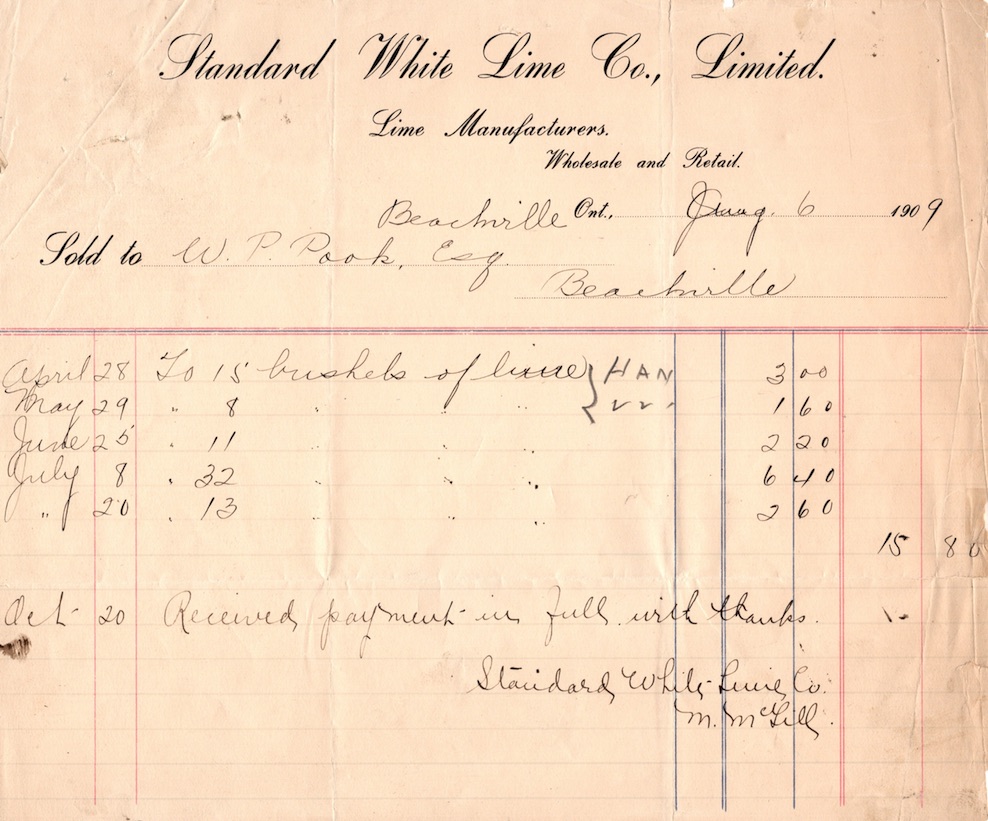 Standard White Lime Co., Limited.
Lime Manufacturers.
Wholesale and Retail.
Beachville Ont., Aug. 6 1909
Sold to W. P. Pook, Esq.
Beachville
April 28 To 15 bushels of lime } HAN 3 00
May 29 " 8 " " { " " " 1 60
June 25 " 11 " " 2 20
July 8 " 32 " " 6 40
" 20 " 13 " " 2 60
15 80
Oct 20 Received payment in full with thanks.
Standard White Lime Co.
M. McGill